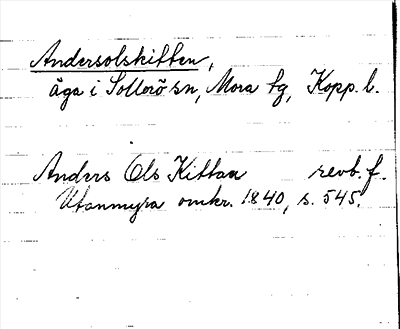 Andersolskitten,
äga i Sollerö sn, Mora tg, Kopp. l.
Anders Ols Kittan revb. f.
Utanmyra omkr. 1840, s. 545.